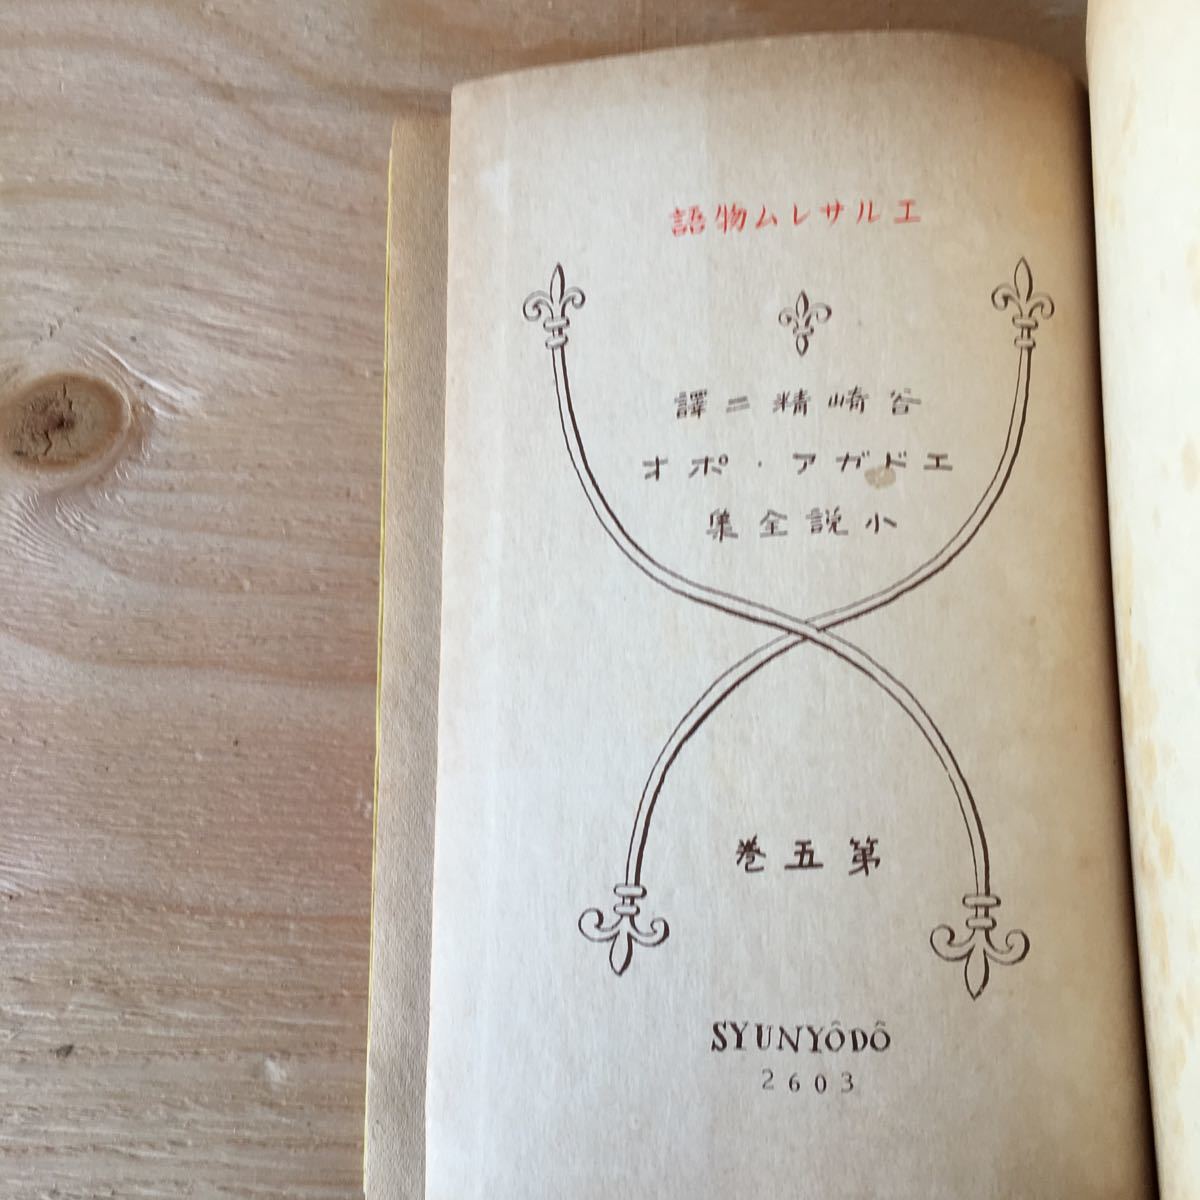 エルサレム物語
谷崎精二譯
エドガア・ポオ
小説全集
第五巻
SYUNYÔDÔ
2603